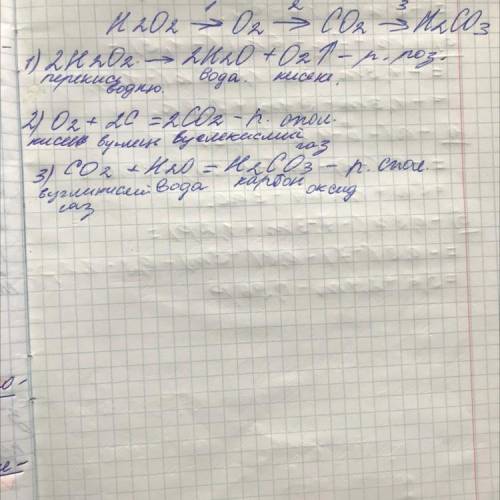 1 2 3
H2O2 → O2 → CO2 → H2CO3
1) 2H2O2 → 2H2O + O2↑ - р. роз.
перекись вода. кисень.
водню.
2) O2 + 2C = 2CO2 - р. спол.
кисень вуглець вуглекислий
газ
3) CO2 + H2O = H2CO3 - р. спол.
вугликислий вода карбон
газ оксид